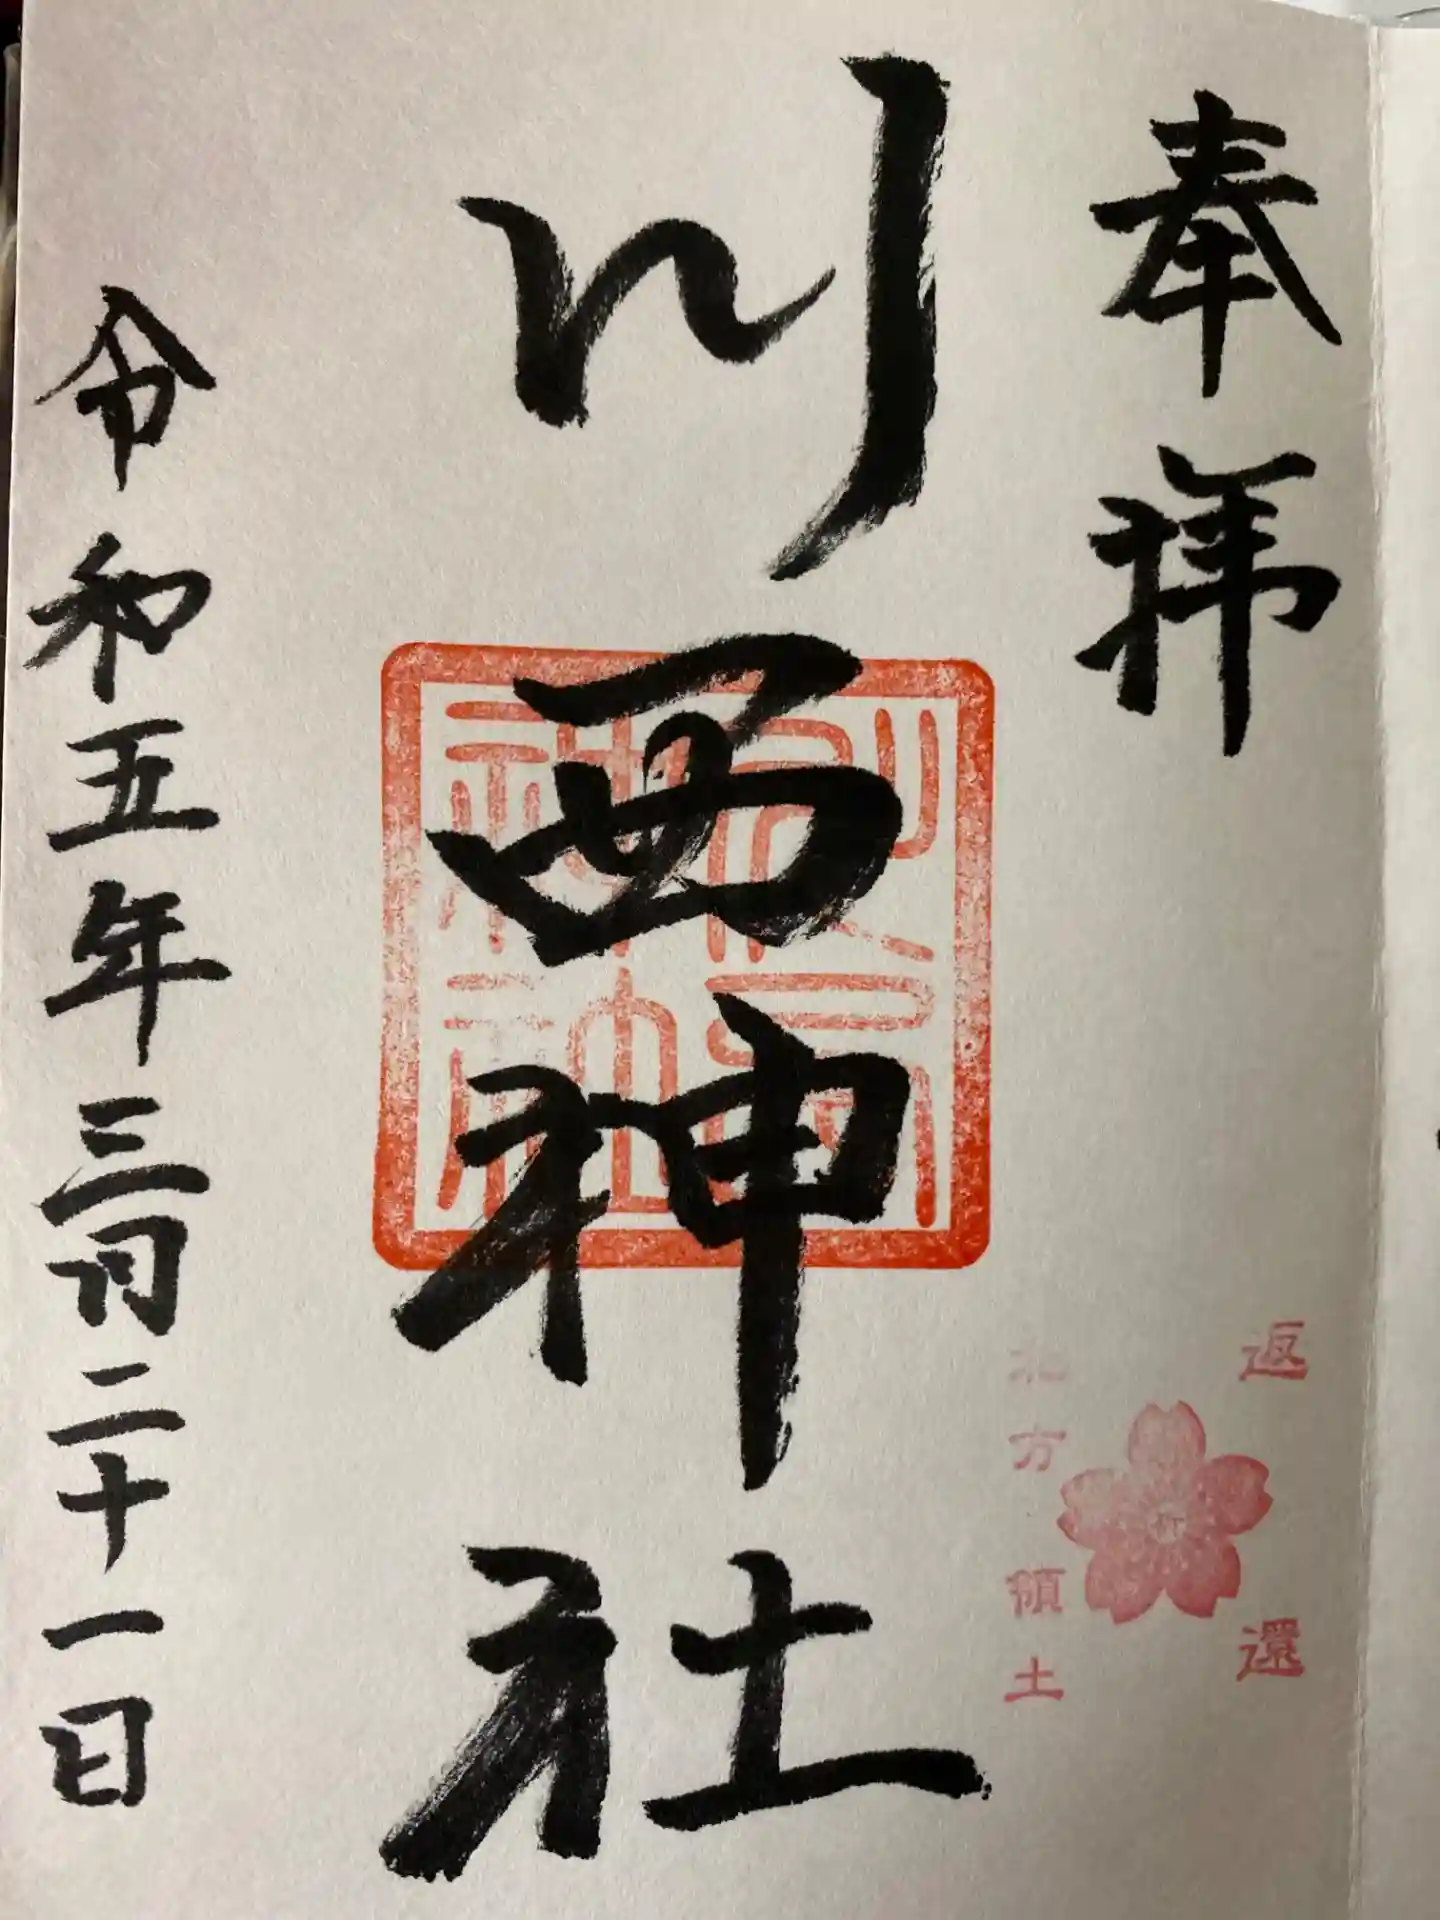 奉拝
川西神社
令和五年三月二十一日
返還
北方領土